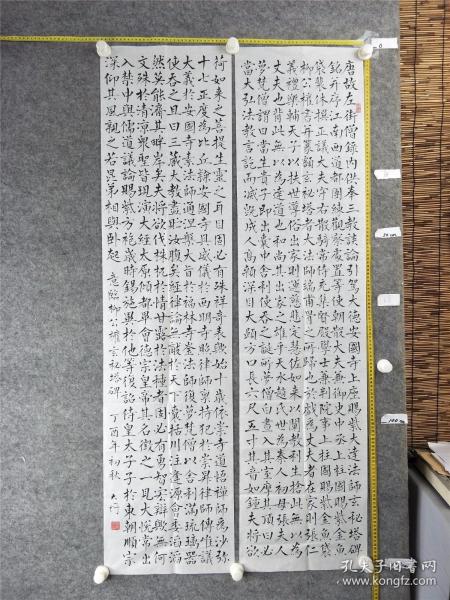 唐故左街僧錄內供奉三教談論引駕大德安國寺上座賜紫大達法師玄秘塔碑
銘并序江南西道都團練觀察處置等使朝散大夫兼御史中丞上柱國賜紫金魚
袋裴休撰正議大夫守右散騎常侍充集賢殿學士兼判院事上柱國賜紫金魚袋
柳公權書并篆額玄秘塔者大法師端甫靈骨之所歸也於戲為丈夫者在家則張仁
義禮樂輔天子以扶世導俗出家則運慈悲定慧佐如來以闡教利生捨此無以為
丈夫也背此無以為達道也和尚其出家之雄乎天水趙氏世為秦人初母張夫人
夢梵僧謂曰當生貴子即出囊中舍利使吞之及誕所夢僧白晝入其室摩其頂曰必
當大弘法教言訖而滅既成人高顙深目大頤方口長六尺五寸其音如鐘夫將欲
荷如來之菩提生靈之耳目固必有殊祥奇表歟始十歲依崇寺道悟禪師為沙彌
十七正度為比丘隸安國寺具威儀於西明寺照律師稟持犯於崇昇律師傳唯識
大義於安國寺素法師通涅槃大旨於福林寺崟法師復夢梵僧以舍利滿琉璃器
使吞之且曰三藏大教盡貯汝腹矣經律論無敵於天下囊括川注逢源會委滔滔
然莫能濟其畔岸矣夫將欲伐株杌於情田雨甘露於法種者固必有勇智宏辯歟無何
文殊於清涼眾聖皆現演大經太原傾都畢會德宗皇帝其名徵之一見大悅常出
入禁中與儒道議論賜紫方袍歲時錫施異於他等復詔侍皇太子於東朝順宗
深仰其風親之若昆弟相與卧起 意臨柳公權玄秘塔碑 丁酉年初秋
孔夫子旧书网
kongfz.com